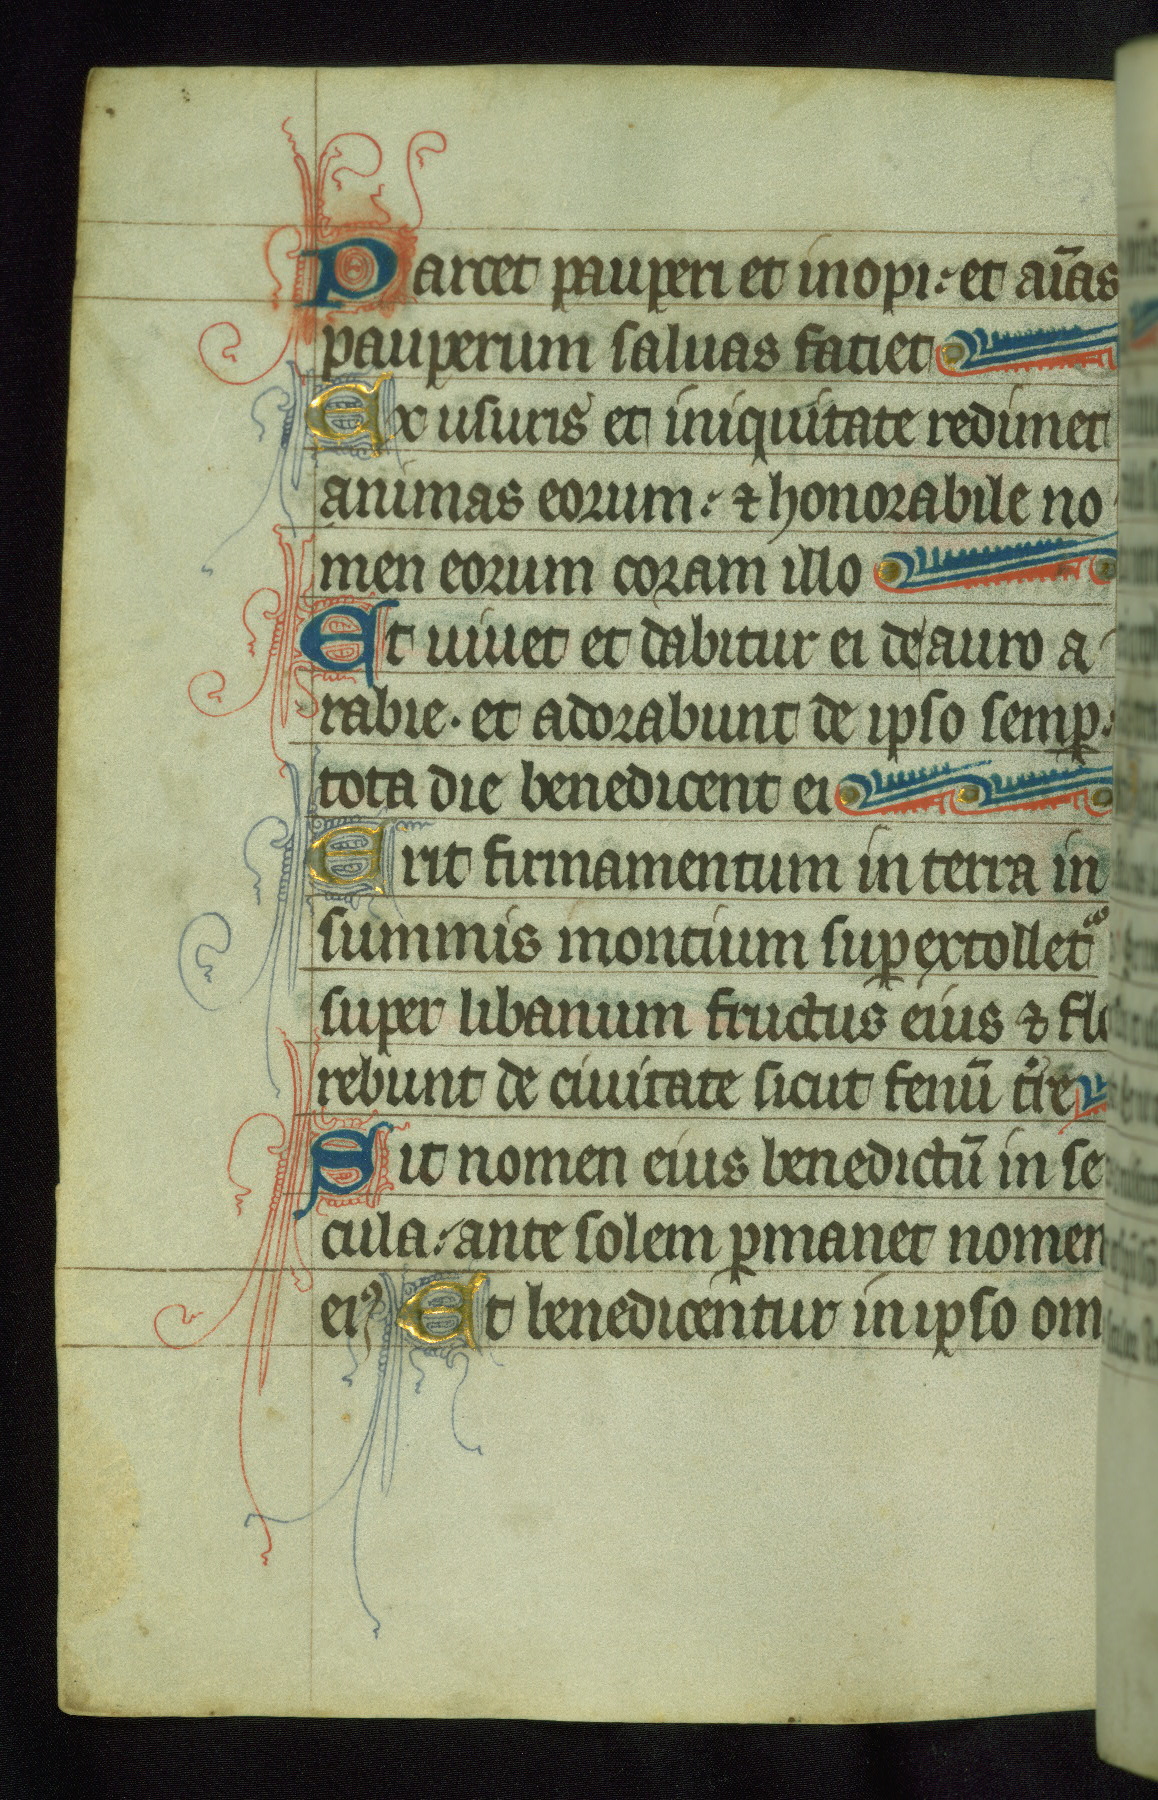 Parcet pauperi et inopi: et aīas
pauperum saluas faciet
Ex usuris et iniquitate redimet
animas eorum: ⁊ honorabile no
men eorum coram illo
Et uiuet et dabitur ei de auro a
rabie. et adorabunt de ipso semꝑ:
tota die benedicent ei
Erit firmamentum in terra in
summis montium suꝑextollet᷑
super libanum fructus eius ⁊ flo
rebunt de ciuitate sicut fenū t̄re
Sit nomen eius benedictū in se
cula: ante solem ꝑmanet nomen
eiꝰ Et benedicentur in ipso om